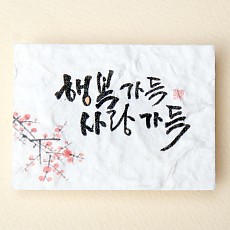 행복 가득
사랑 가득